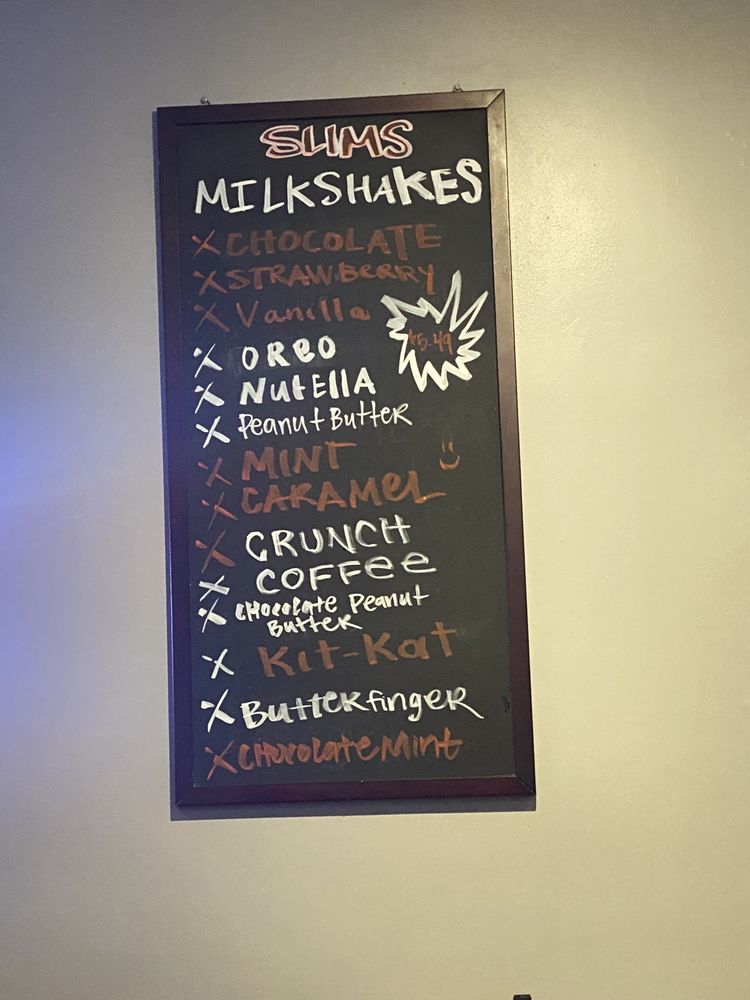 SLIMS
MILKSHAKES
X CHOCOLATE
X STRAWBERRY
X Vanilla
$5.49
X OREO
X NUtELLA
X Peanut Butter
X MINT
X CARAMEL
X CRUNCH
X COFFee
X CHocolate Peanut
Butter
X Kit-Kat
X Butterfinger
X CHocolate Mint